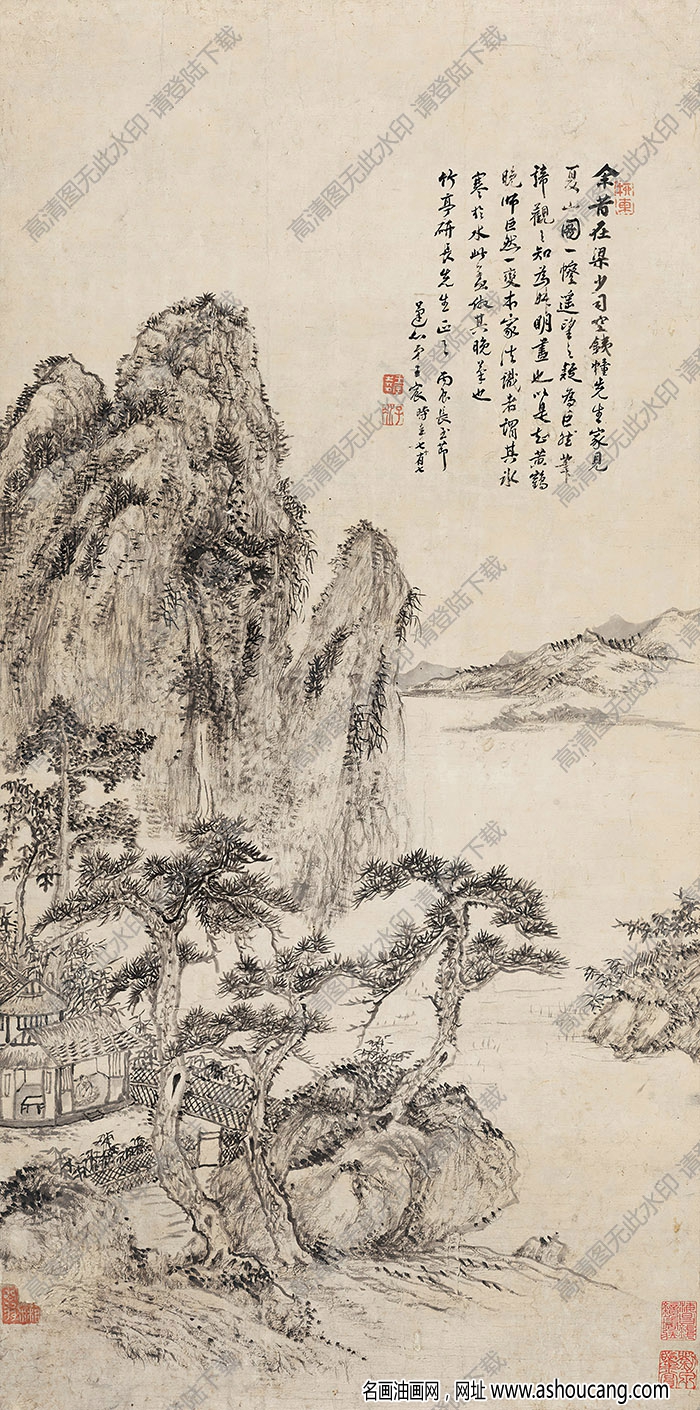 余昔在梁少司空铁幢先生家见
夏山图一幢遥望之疑为巨然笔
谛观之知为叔明画也以是知黄鹤
晚师巨然一变本家法识者谓其冰
寒於水此盖仿其晚笔也
竹亭研长先生正之 丙辰长至节
蓬心弟王宸时年七十有七
高清图无此水印 请登陆下载
名画油画网，网址 www.ashoucang.com